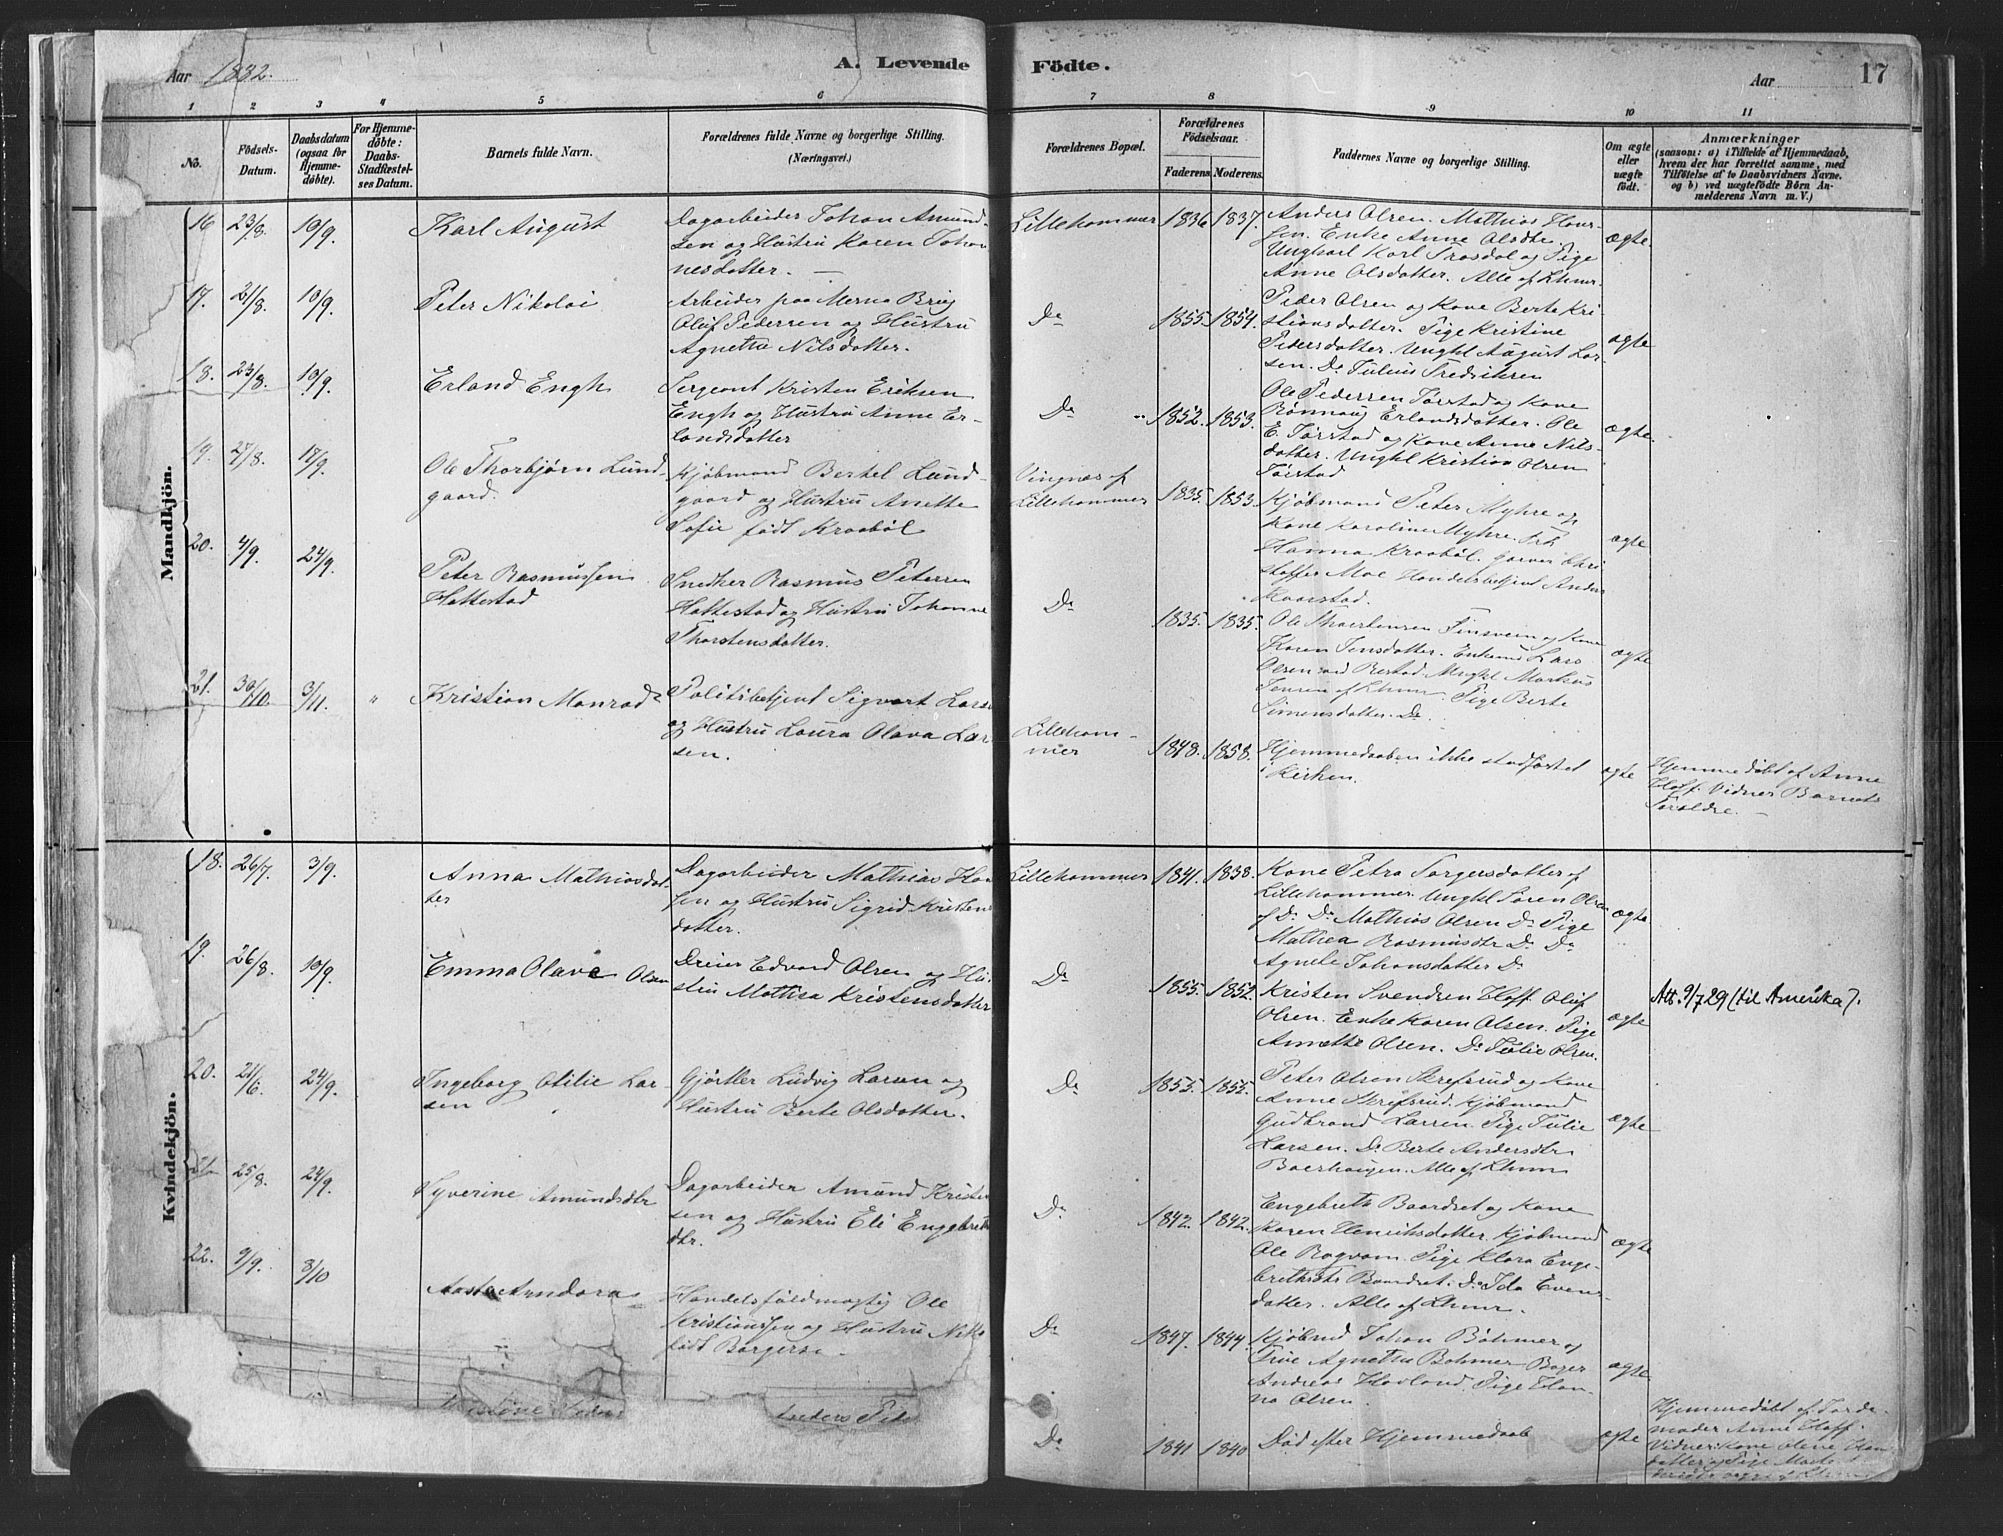 Aar 1882.
A. Levende Födte.
Aar
17
1 2 3 4 5 6 7 8 9 10 11
No.
Födsels-
Datum.
Daabsdatum
(ogsaa for
Hjemme-
døbte).
For Hjemme-
døbte:
Daabs-
Stadfestel-
ses Datum.
Barnets fulde Navn.
Forældrenes fulde Navne og borgerlige Stilling.
(Næringsvei.)
Forældrenes Bopæl.
Forældrenes
Födselsaar.
Faderens. Moderens.
Faddernes Navne og borgerlige Stilling.
Om ægte
eller
uægte
födt.
Anmærkninger
(saasom: a) i Tilfælde af Hjemmedaab,
hvem der har forrettet samme, med
Tilföielse af to Daabsvidners Navne.
og b) ved uægtefödte Börn An-
melderens Navn m. V.)
Mandkjön.
16 23/8. 10/9.
Karl August
Dagarbeider Johan Amund-
sen og Hustru Karen Johan
nesdatter. —
Lillehammer 1836 1837.
Anders Olsen. Mathias Han-
sen. Enke Anne Olsdtr.
Ungkarl Karl Trosdal og Pige
Anne Olsdatter. Alle af Lhmr.
ægte.
17. 21/8. 10/9.
Peter Nikolai
Arbeider paa Mesna Brug
Oluf Pedersen og Hustru
Agnethe Nilsdatter.
Do 1855. 1854.
Peder Olsen og Kone Berte Kri
stiansdatter. Pige Kristine
Pedersdatter. Ungkl August Lar-
sen. Do Julius Fredriksen
ægte
18. 23/8. 10/9.
Erland Engh
Sergeant Kristen Eriksen
Engh og Hustru Anne Er-
landsdatter
Do 1852. 1853.
Ole Pedersen Jørstad og Kone
Rønnaug Erlandsdatter. Ole
E. Jørstad og Kone Anne Nils-
datter. Ungkl Kristian Olsen
Jørstad
ægte.
19. 27/8. 17/9.
Ole Thorbjørn Lund-
gaard.
Kjøbmand Bertel Lund-
gaard og Hustru Anette
Sofie født Kraabøl
Vingnæs af
Lillehammer 1835. 1853.
Kjøbmand Peter Myhre og
Kone Karoline Myhre. Frk
Hanna Kraabøl. Garver Chri
stoffer Moe Handelsbetjent Anders
Kaarstad.
ægte
20. 4/9. 24/9.
Peter Rasmussen
Hattestad
Snedker Rasmus Petersen
Hattestad og Hustru Johanne
Thorstensdatter.
Do 1835. 1835.
Ole Thorstensen Finsveen og Kone
Karen Jensdatter. Enkemd Lars
Olsen Berstad Ungkl Markus
Jensen af Lhmr. Pige Berte
Simensdatter. Do.
ægte
21. 30/10. 3/11. "
Kristian Monrad
Politibetjent Sigvart Lars
og Hustru Laura Olava Lar
sen.
Lilleham-
mer 1848. 1858.
Hjemmedaaben ikke stadfæstet
i Kirken.
ægte
Hjemmedøbt af Anne
Hoff. Vidner Barnets
Forældre. —
Kvindekjön.
18. 26/7. 3/9.
Anna Mathiasdat-
ter
Dagarbeider Mathias Han
sen og Hustru Sigrid Kristens
datter.
Lillehammer 1841. 1838.
Kone Petra Torgersdatter af
Lillehammer. Ungkl Søren Olsen
af Do. Do Mathias Olsen Do Pige
Mathea Rasmusdtr Do. Do
Agnete Johansdatter Do
ægte
19. 26/8. 10/9.
Emma Olava Olsen
Dreier Edvard Olsen og Hu-
stru Mathea Kristensdatter
Do 1855. 1852.
Kristen Svendsen Hoff. Oluf
Olsen. Enke Karen Olsen. Pige
Annette Olsen. Do Julie Olsen.
ægte
Att. 9/7 29 (til Amerika).
20. 21/6. 24/9.
Ingeborg Otilie Lar-
sen
Gjørtler Ludvig Larsen og
Hustru Berte Olsdatter.
Do 1853. 1855.
Peter Olsen Skrefsrud og Kone
Anne Skrefsrud. Kjøbmand
Gudbrand Larsen. Pige Julie
Larsen. Do Berte Andersdtr
Baarhaugen. Alle af Lhmr
ægte
21. 25/8. 24/9.
Syverine Amundsdtr
Dagarbeider Amund Krist
sen og Hustru Eli Engebrets
dtr.
Do 1842. 1842.
Engebreth Baardset og Kone
Karen Henriksdatter. Kjøbmand
Ole Rogvam. Pige Klara Enge-
brethsdtr Baardset. Do Ida Evens-
datter. Alle af Lhmr.
ægte
22. 9/9. 8/10
Aasta Arndora
Handelsfuldmægtig Ole
Kristianssen og Hustru
født Borgerse.
Do 1847. 1844.
Kjøbmd Johan Bøhmer og
Frue Agnethe Bøhmer Bager
Andreas Havland. Pige Han-
na Olsen.
ægte
Do 1841 1840
Død efter Hjemmedaab
ægte
Hjemmedøbt af Jorde-
moder Anne Hoff.